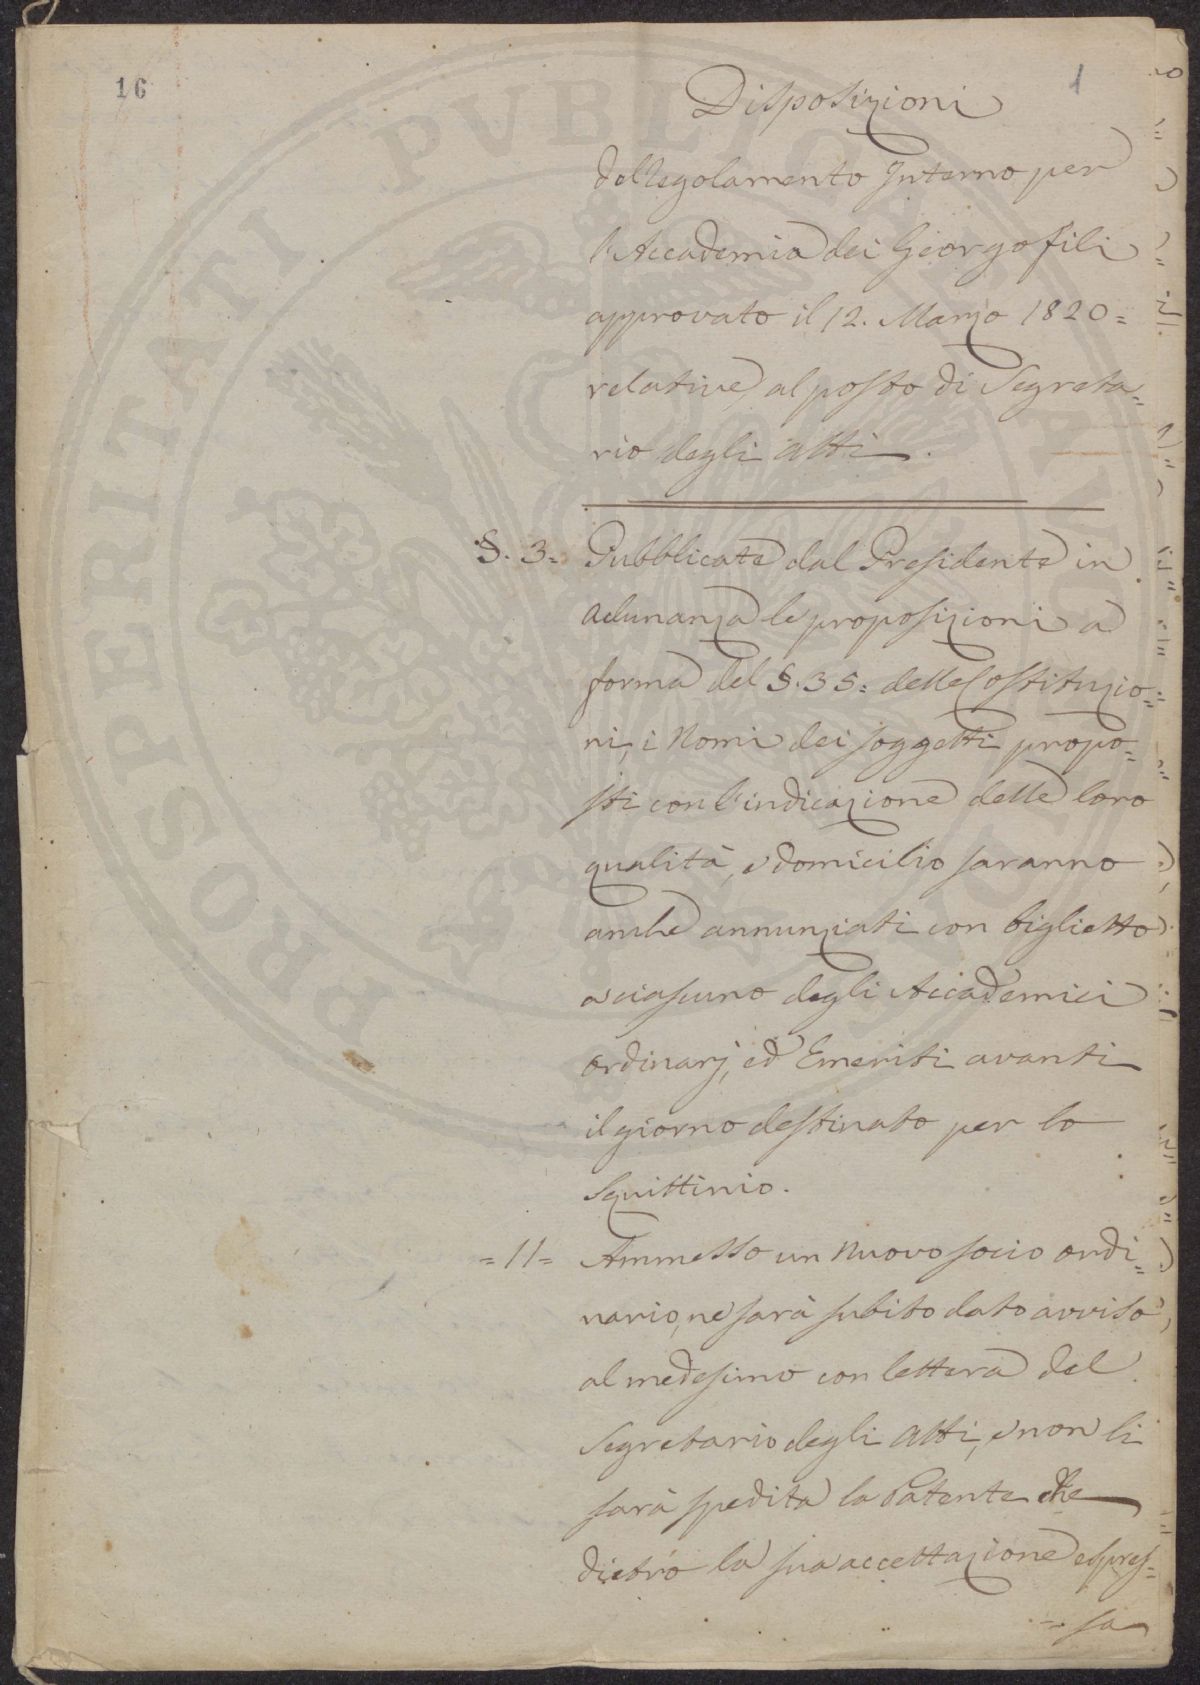 16
1
Disposizioni
del Regolamento Interno per
l'Accademia dei Georgofili
approvato il 12. Marzo 1820=
relative al posto di Segreta=
rio degli Atti.
§. 3= Pubblicate dal Presidente in
Adunanza le proposizioni a
forma del §. 35= delle Costituzio=
ni, i Nomi dei soggetti propo=
sti con l'indicazione delle loro
qualità, e domicilio saranno
anche annunziati con biglietto
a ciascuno degli Accademici
ordinarj, ed Emeriti avanti
il giorno destinato per lo
Squittinio.
=11= Ammesso un nuovo socio ordi=
nario, ne sarà subito dato avviso
al medesimo con lettera del
Segretario degli Atti, e non li
sarà spedita la Patente che
dietro la sua accettazione espres=
=sa
PROSPERITATI PVBLICAE